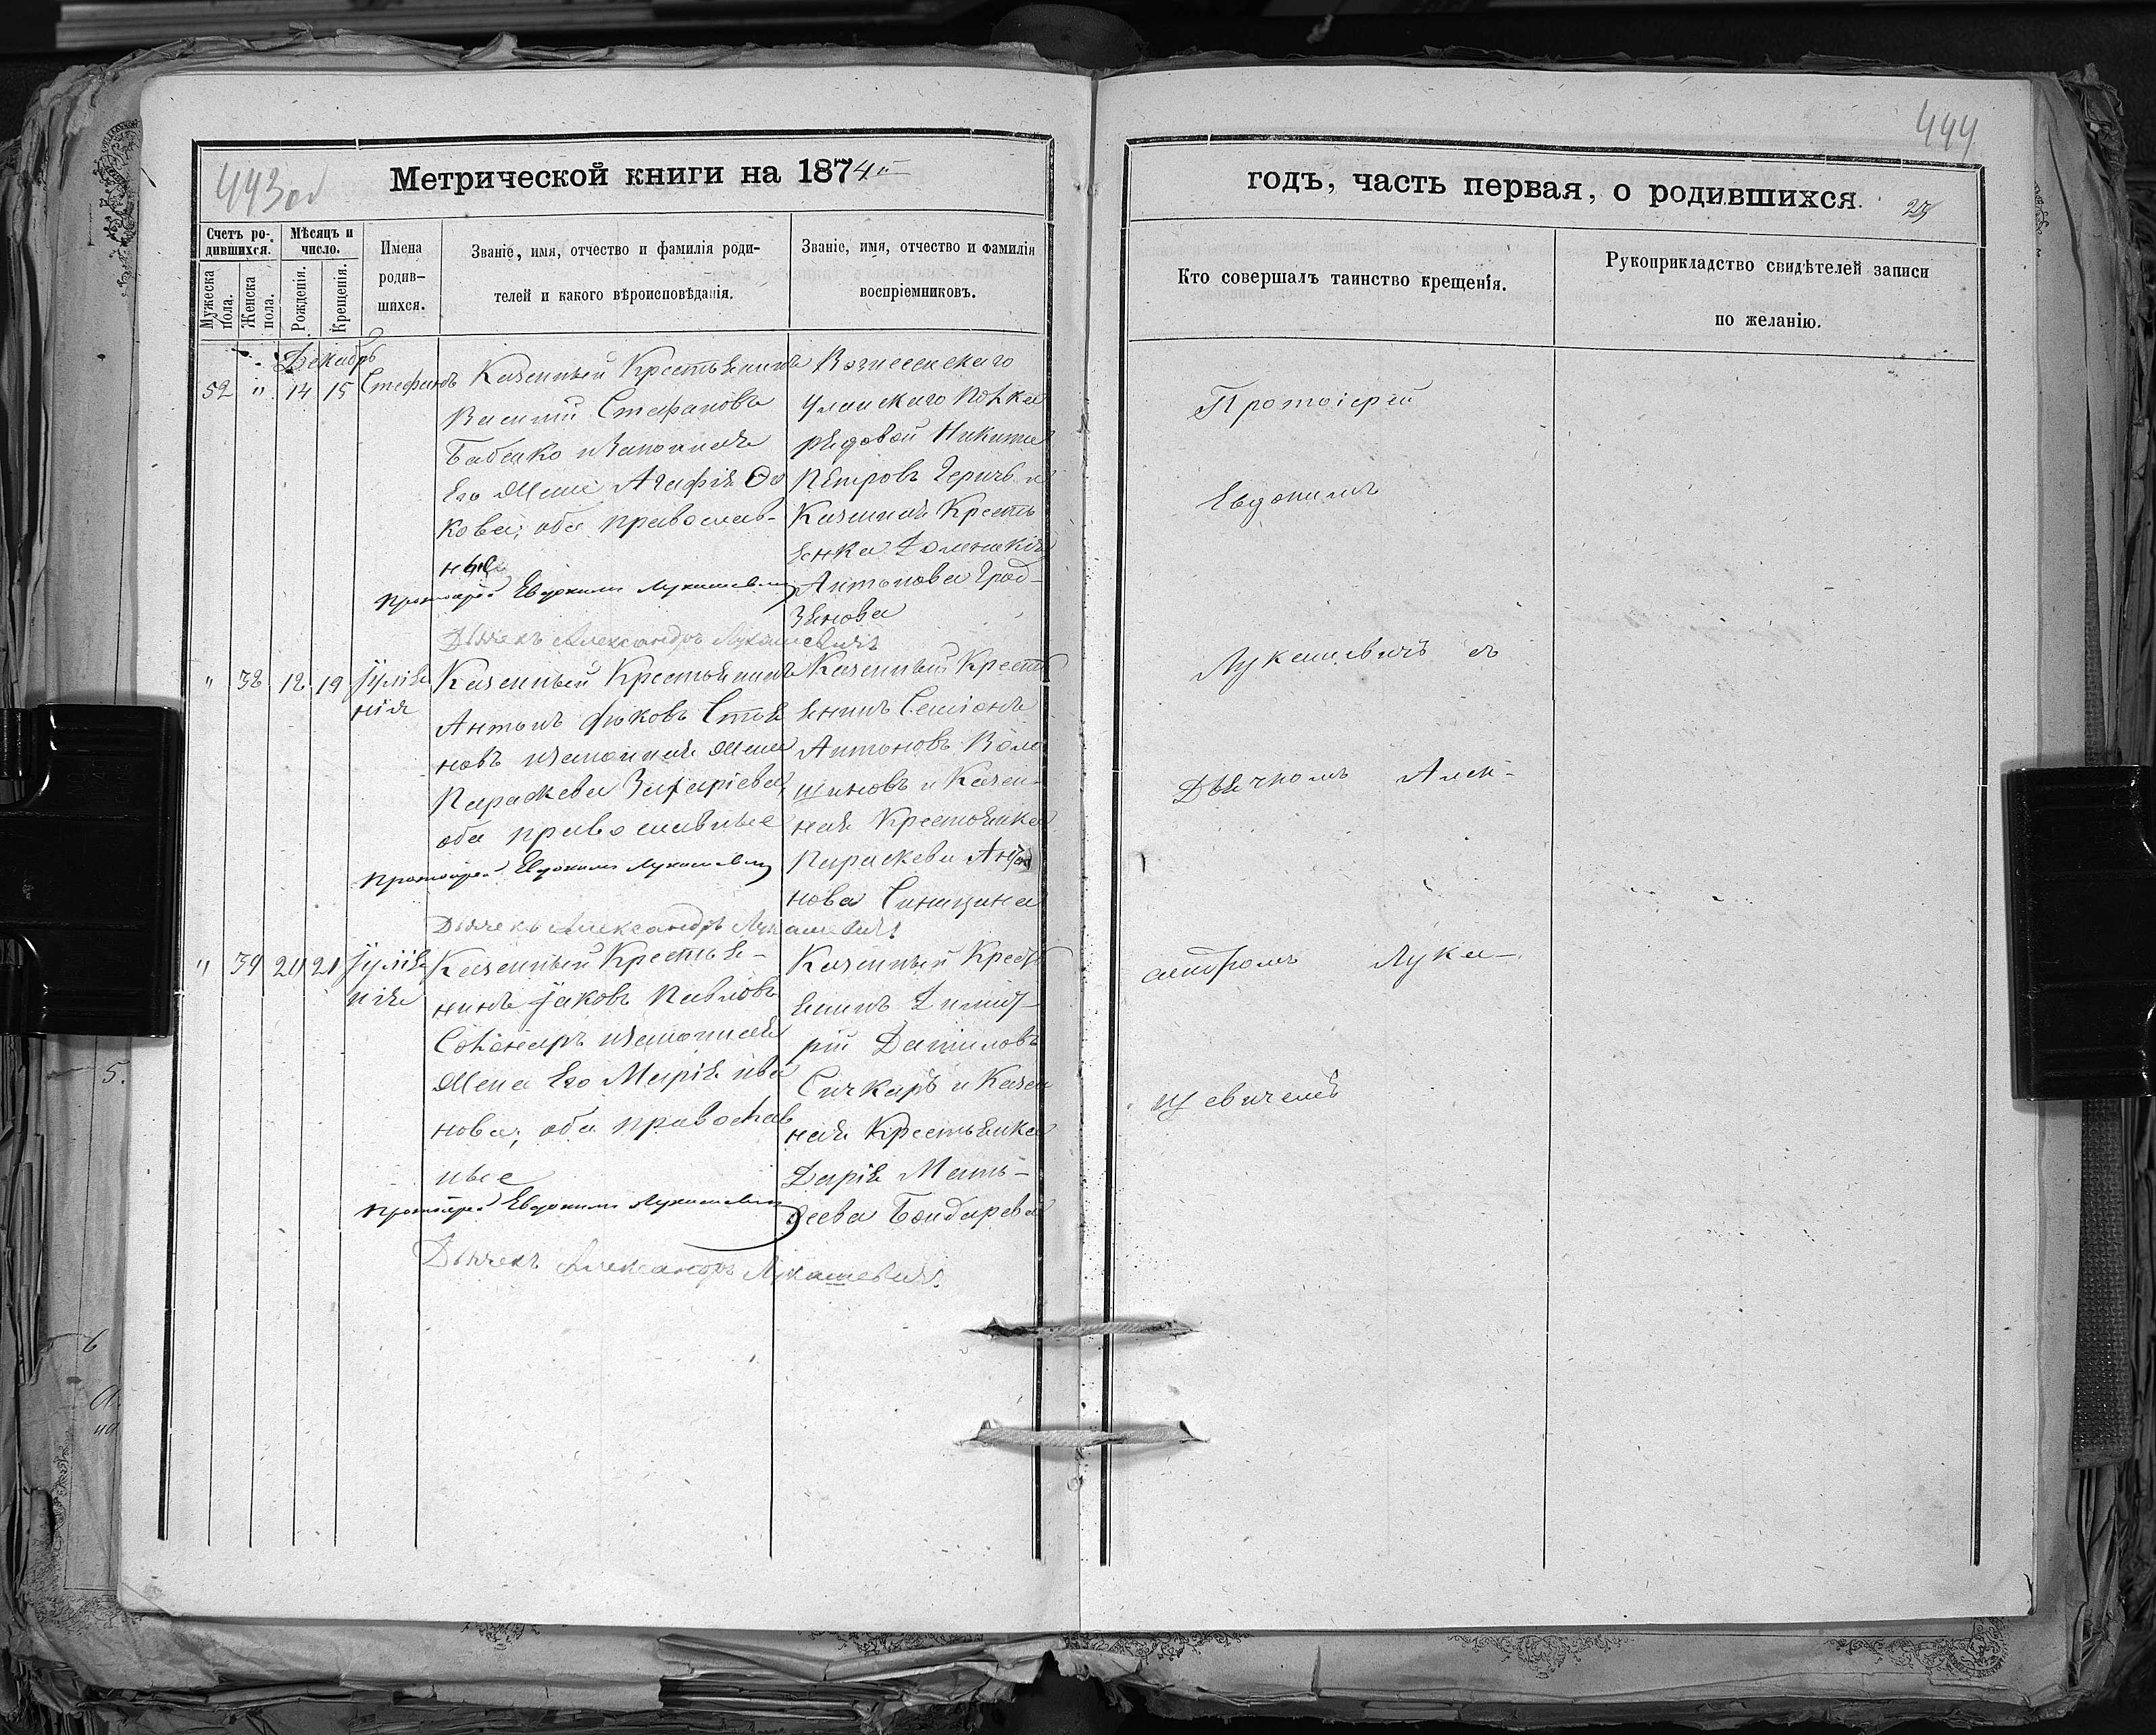 443об
Метрической книги на 1874й
Счетъ ро-
дившихся.
Мѣсяцъ и
число.
Мужеска
пола.
Женска
пола.
Рожденія.
Крещенія.
Имена
родив-
шихся.
Званіе, имя, отчество и фамилія роди-
телей и какого вѣроисповѣданія.
Званіе, имя, отчество и фамилія
воспріемниковъ.
Декабрь
52 " 14 15 Стефанъ
Казенный Крестьянинъ
Василій Стефановъ
Бабако и законная
Его Жена Агафія Фо
кова, оба православ-
ные
Протоіерей Евдокимъ Лукашевичъ
Дьячекъ Александръ Лукашевичъ
Вознесенскаго
Уланскаго Полка
рядовой Никита
Петровъ и
Казенная Кресть
янка Домникія
Антонова
" 38 18 19 Іулiа
нія
Казенный Крестьянинъ
Антонъ
новъ и законная Жена
Параскева Захаріева,
оба православные
Протоіерей Евдокимъ Лукашевичъ
Дьячекъ Александръ Лукашевичъ
Казенный Кресть
янинъ Семіонъ
Антоновъ Воло
шиновъ и Казен-
ная Крестьянка
Параскева Анто
нова Синицина
" 39 20 21 Іуліа
нія
Казенный Крестья-
нинъ Іаковъ Павловъ
и законная
Жена Его Марія Ива
нова, оба православ
ные
Протоіерей Евдокимъ Лукашевичъ
Дьячекъ Александръ Лукашевичъ
Казенный Кресть
янинъ Димит-
рій Даниловъ
Сичкарь и Казен
ная Крестьянка
Дарія Мать-
веева Бондарева
444
годъ, часть первая, о родившихся.
Кто совершалъ таинство крещенія.
Рукоприкладство свидѣтелей записи
по желанію.
Протоіерей
Евдокимъ
Лукашевичъ съ
Дьячкомъ Алек-
сандромъ Лука-
шевичемъ